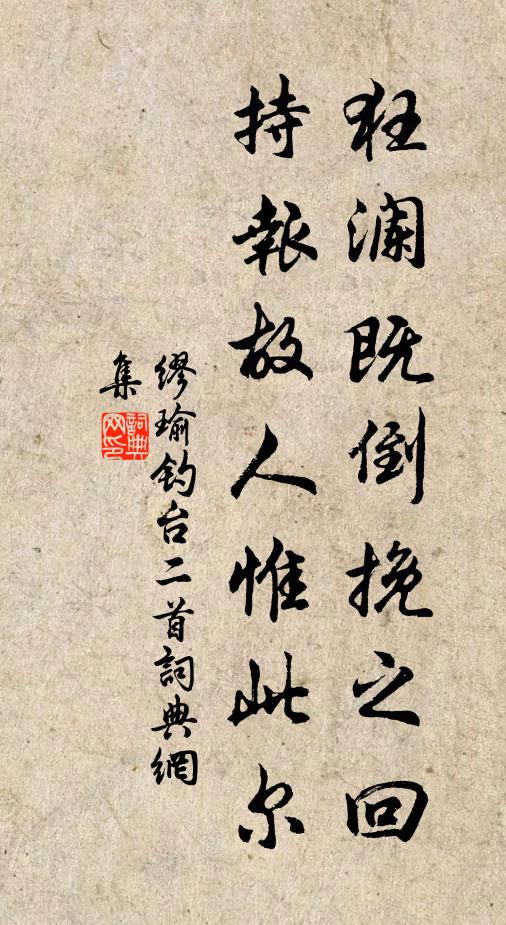 狂澜既倒挽之回
持報故人惟此尔
缪瑜钓台二首詞典網
集
詞典网印